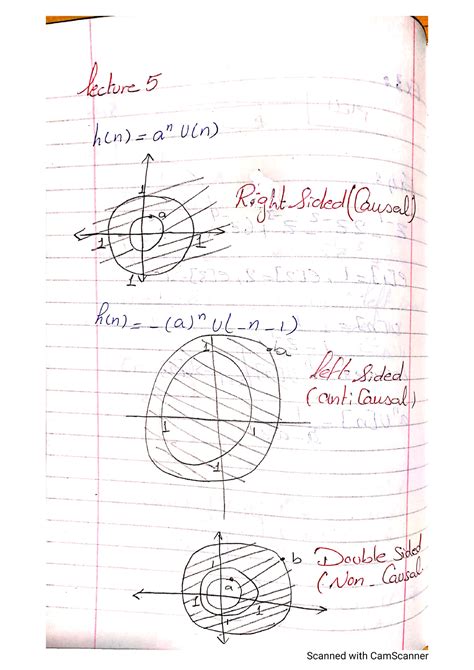 Lecture 5
h(n) = aⁿ U(n)
1
a
Right Sided (Causal)
1
1
1
h(n) = -(a)ⁿ U(-n-1)
1
a
Left Sided
(anti Causal)
1
1
1
b
Double Sided
(Non-Causal
1
a
1
1
1
Scanned with CamScanner